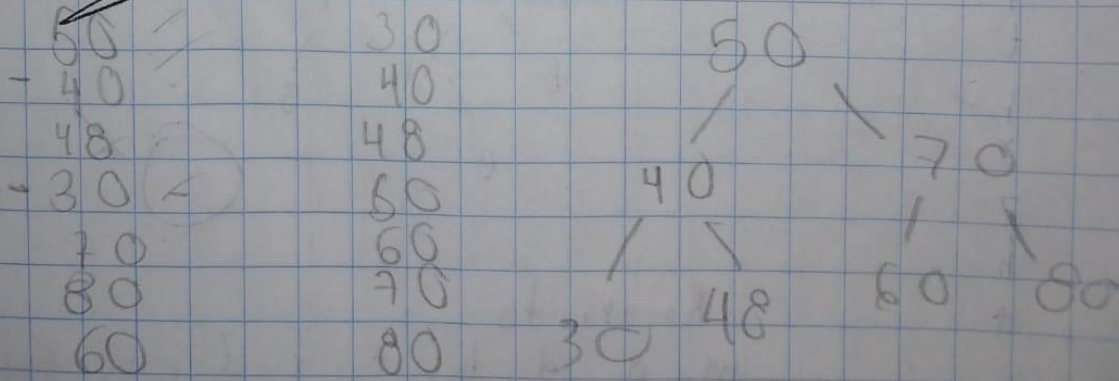 50 >
- 40
48
- 30 <
70
80
60
30
40
48
50
60
70
80
50
40 70
30 48 60 80